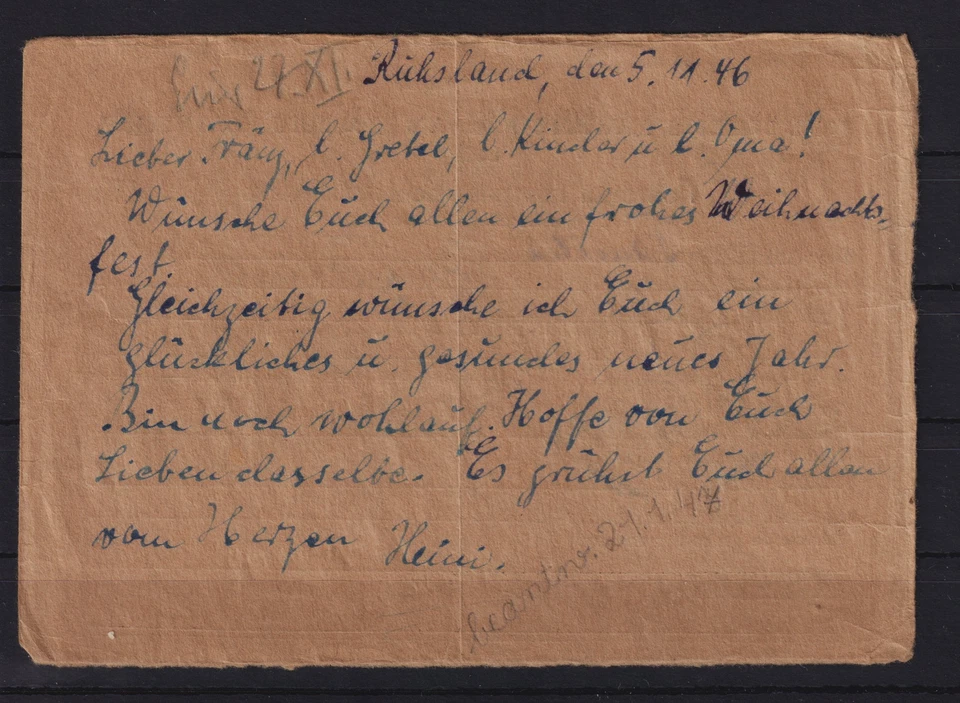 Eing 27. XI.
Rußland, den 5. 11. 46
Lieber Franz, l. Gretel, l. Kinder u l. Oma!
Wünsche Euch allen ein frohes Weihnachts-
fest.
Gleichzeitig wünsche ich Euch ein
glückliches u. gesundes neues Jahr.
Bin noch wohlauf. Hoffe von Euch
Lieben dasselbe. Es grüßt Euch allen
vom Herzen Heini.
beantw. 21.1.47